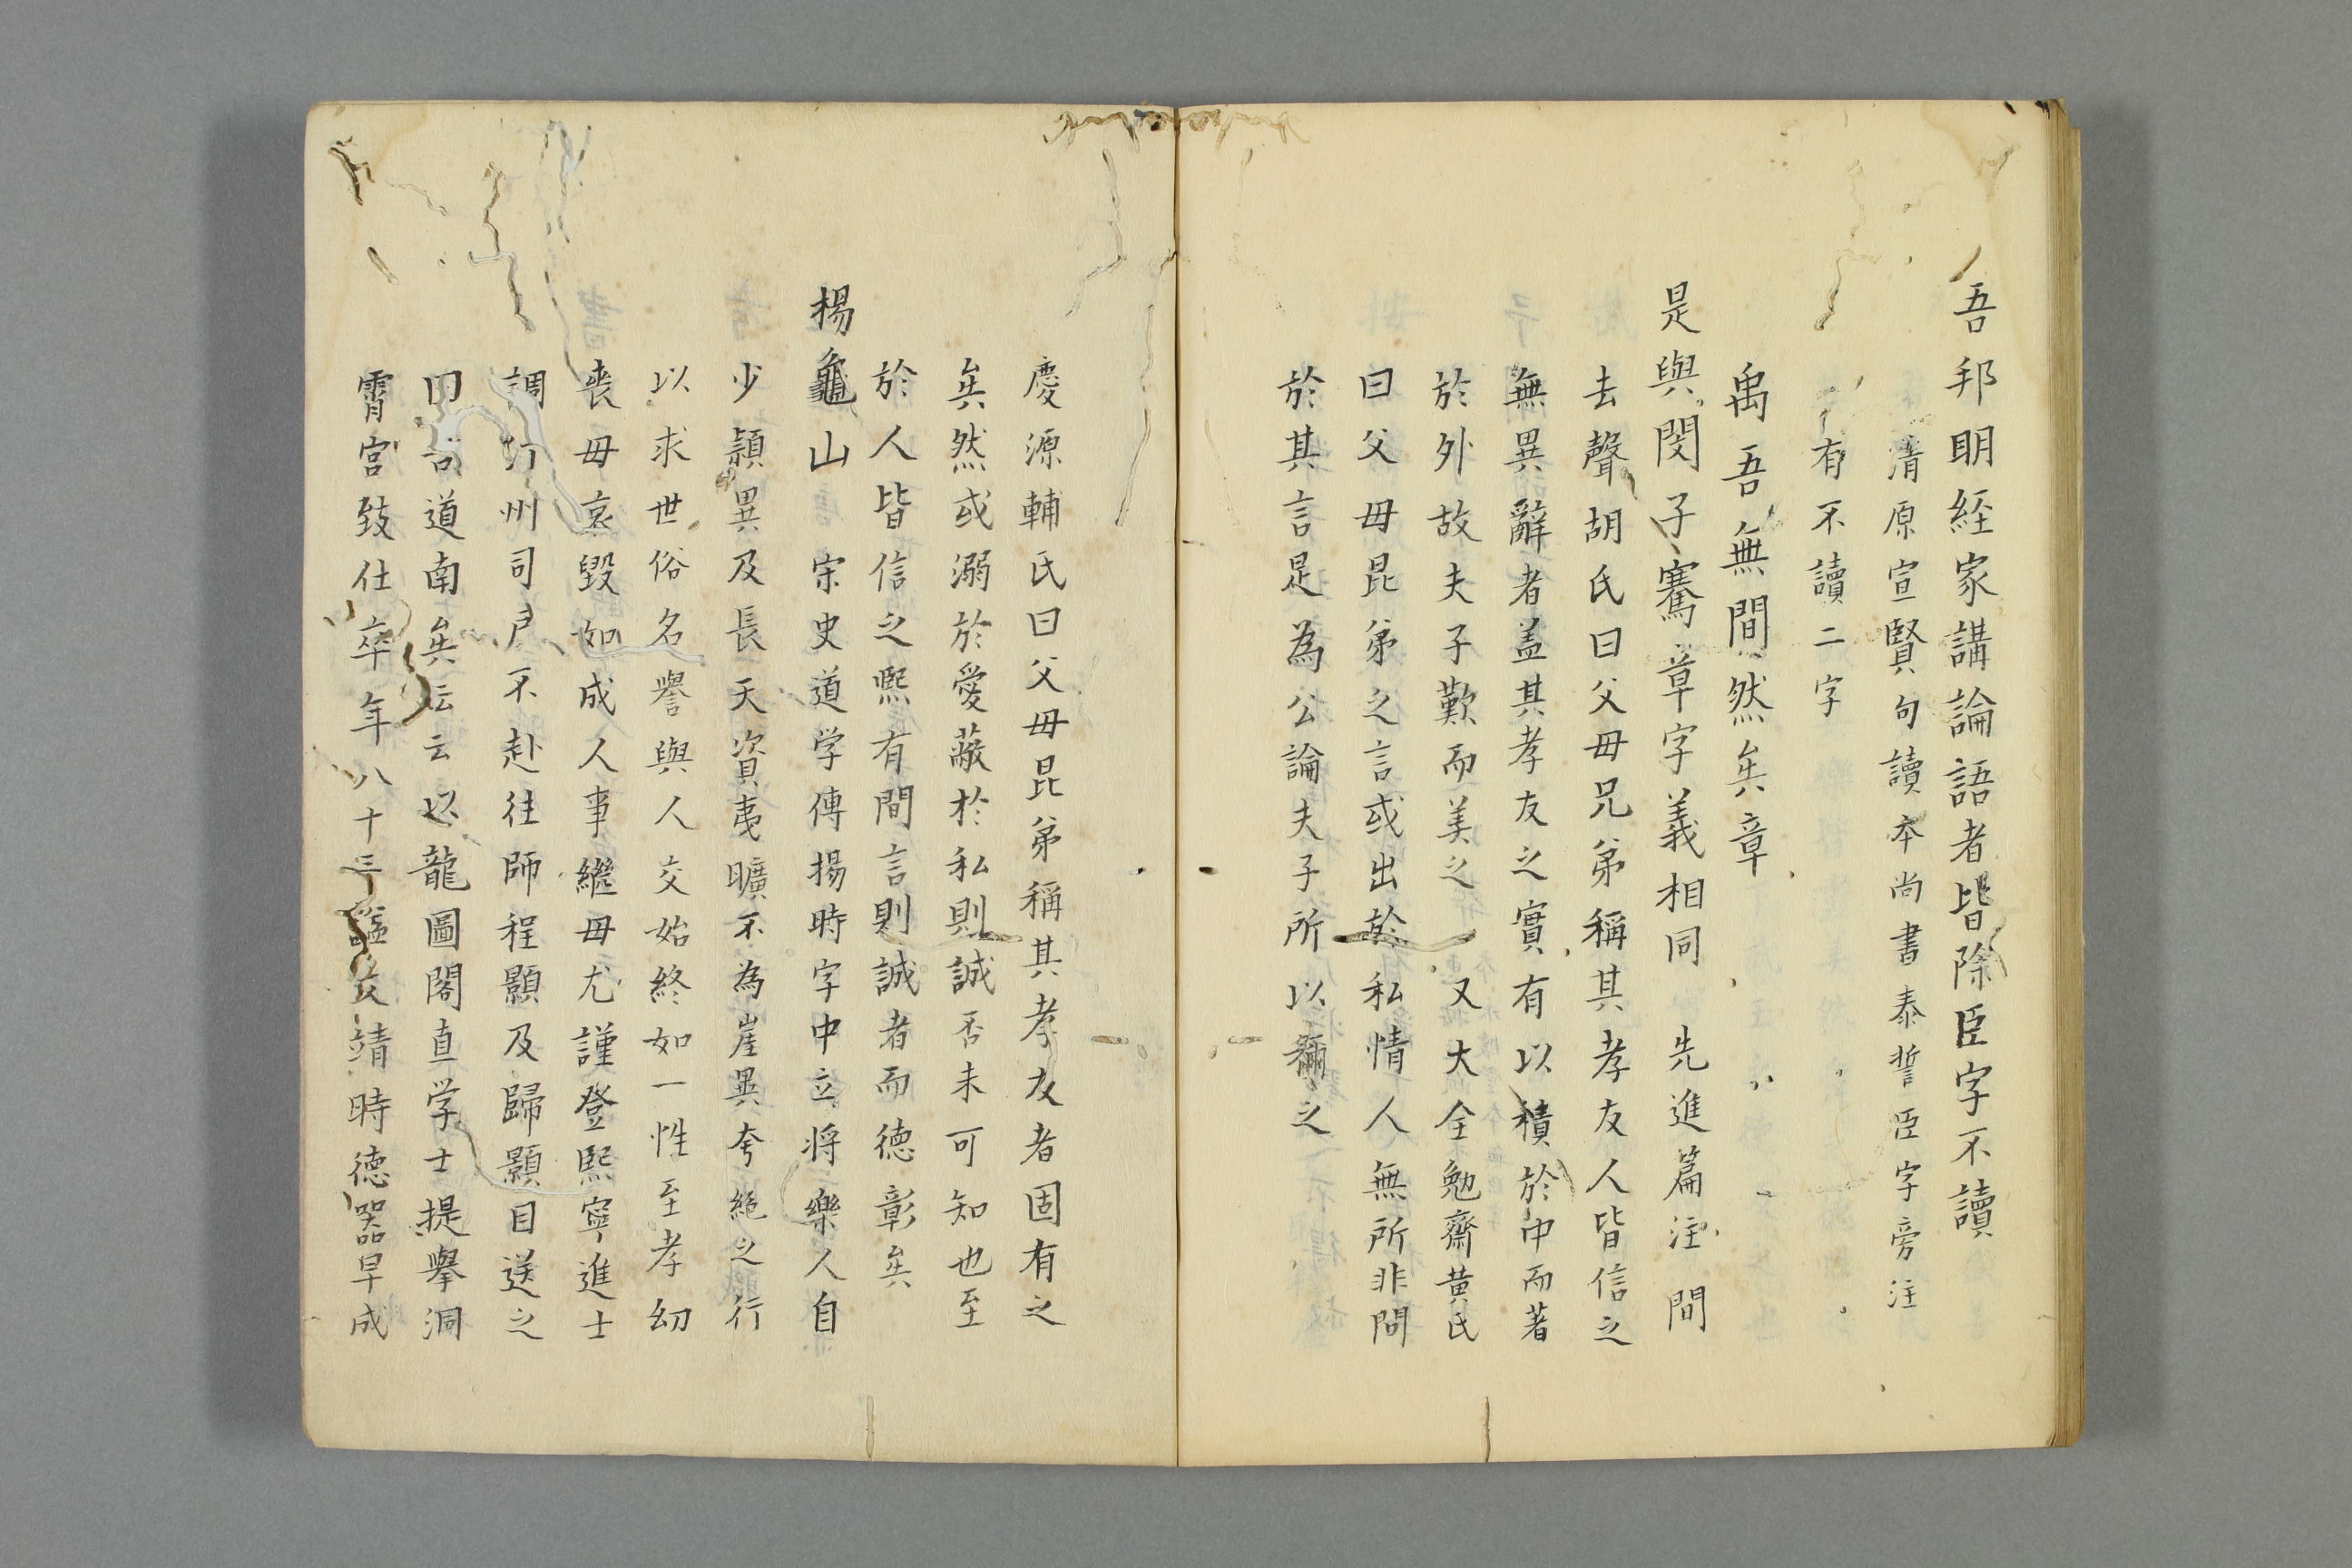 吾邦明経家講論語者皆除臣字不讀
清原宣賢句讀本尚書泰誓臣字旁注
有不讀二字
禹吾無間然矣章
是與閔子騫章字義相同 先進篇注 間
去聲胡氏曰父母兄弟稱其孝友人皆信之
無異辭者盖其孝友之實有以積於中而著
於外故夫子歎而美之 又大全勉齋黄氏
曰父母昆弟之言或出於私情人無所非間
於其言是為公論夫子所以稱之
慶源輔氏曰父母昆弟稱其孝友者固有之
矣然或溺於愛蔽於私則誠否未可知也至
於人皆信之熈有間言則誠者而德彰矣
楊龜山 宋史道学傳楊時字中立将樂人自
少頴異及長天資夷曠不為崖異夸絶之行
以求世俗名譽與人交始終如一性至孝幼
喪母哀毀如成人事繼母尤謹登熈寧進士
調汀州司戸不赴往師程顥及歸顥目送之
曰吾道南矣云云以龍圖閣直学士提舉洞
霄宮致仕卒年八十三謚文靖時德器早成